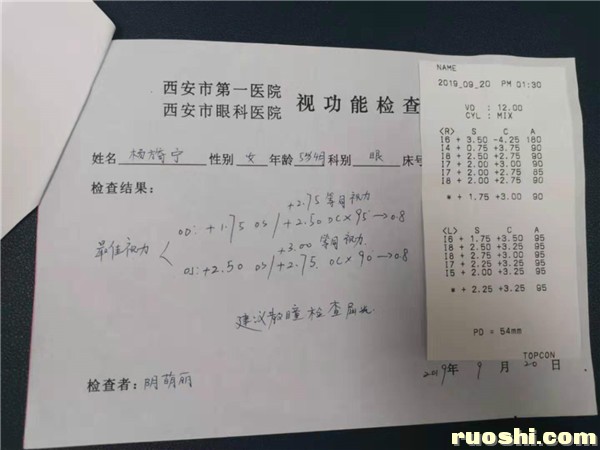 西安市第一医院
西安市眼科医院 视功能检查
姓名 性别 女 年龄 科别 眼 床号
检查结果:
+2.75 等同视力
OD: +1.75 DS / +2.50 DC × 95 → 0.8
最佳视力
+3.00 等同视力
OS: +2.50 DS / +2.75 DC × 90 → 0.8
建议散瞳检查屈光
检查者: 阴萌丽
2019年 9 月 20 日
NAME
2019_09_20 PM 01:30
VD : 12.00
CYL : MIX
<R> S C A
I6 + 3.50 -4.25 180
I4 + 0.75 +3.75 90
I6 + 2.50 +2.75 90
I7 + 2.00 +3.00 90
I7 + 2.00 +2.75 85
I8 + 2.00 +2.75 90
* + 1.75 +3.00 90
<L> S C A
I6 + 1.75 +3.50 95
I6 + 2.50 +3.50 95
I8 + 2.75 +3.00 95
I7 + 2.25 +3.25 95
I5 + 2.00 +3.25 95
* + 2.25 +3.25 95
PD = 54mm
TOPCON
ruoshi.com